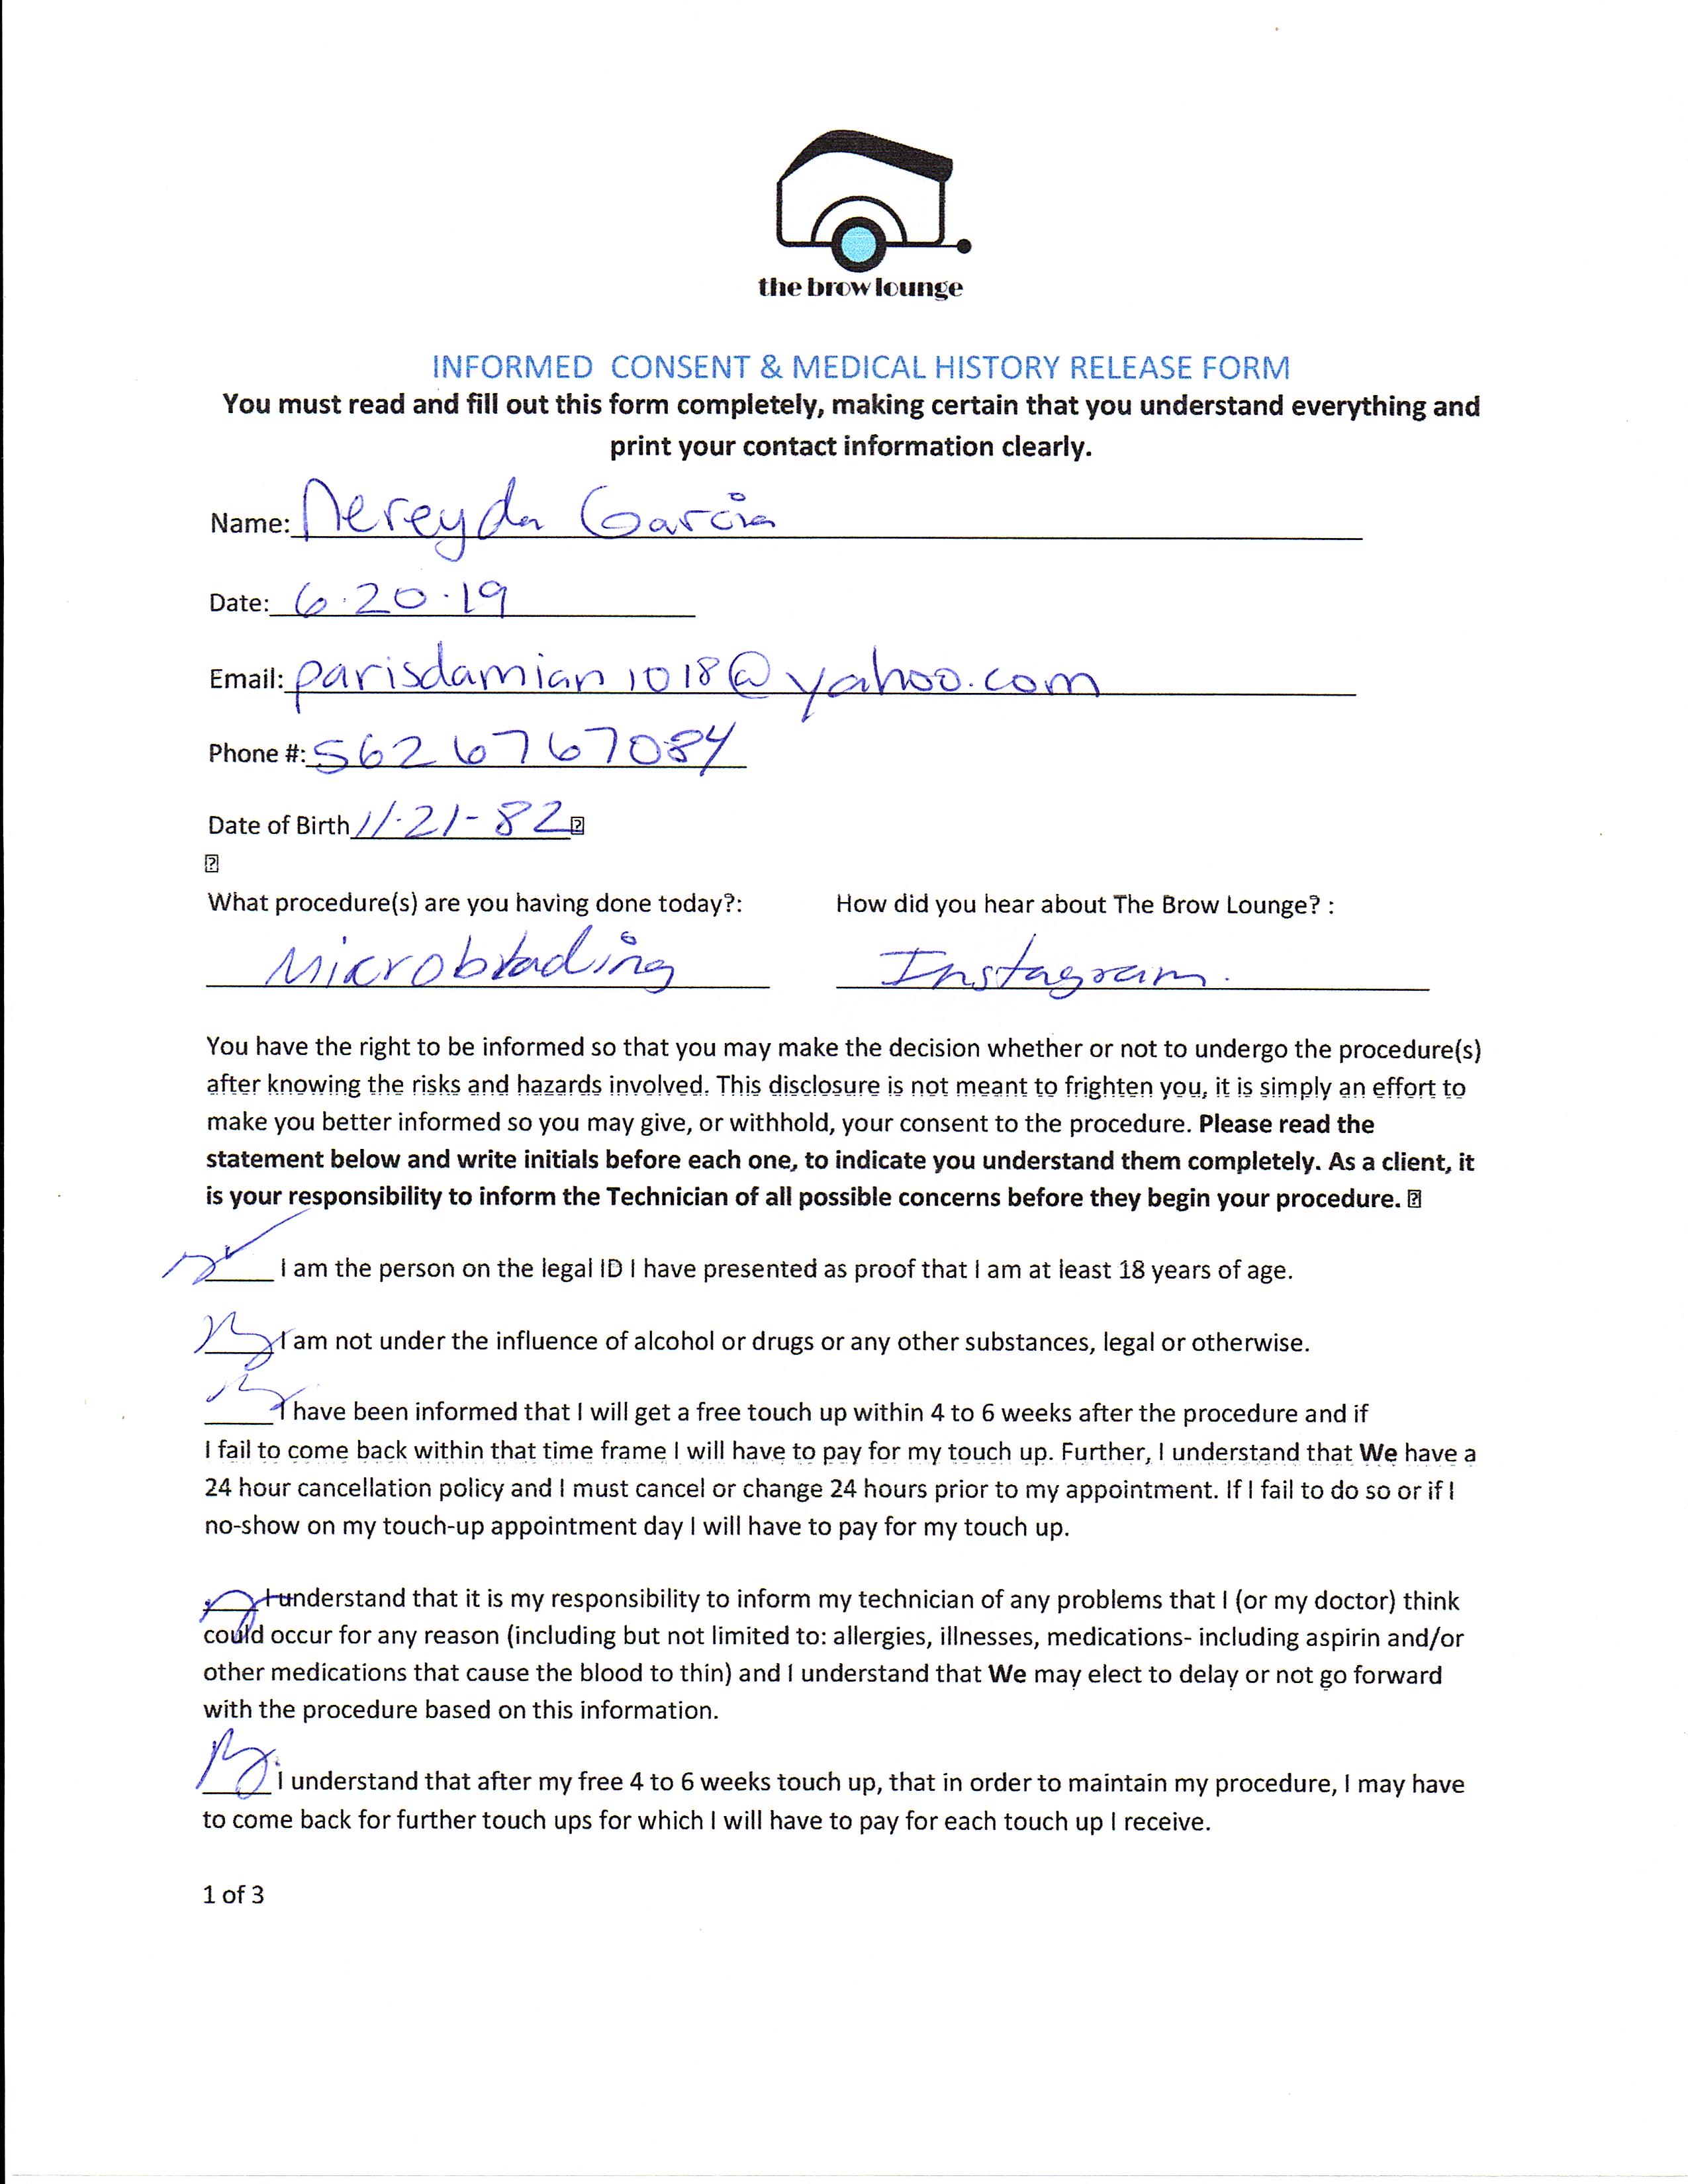 the brow lounge
INFORMED CONSENT & MEDICAL HISTORY RELEASE FORM
You must read and fill out this form completely, making certain that you understand everything and
print your contact information clearly.
Name: Nereyda Garcia
Date: 6.20.19
Email: parisdamian1018@yahoo.com
Phone #: 5626767084
Date of Birth 11-21-82
What procedure(s) are you having done today?: How did you hear about The Brow Lounge? :
Microblading Instagram.
You have the right to be informed so that you may make the decision whether or not to undergo the procedure(s)
after knowing the risks and hazards involved. This disclosure is not meant to frighten you, it is simply an effort to
make you better informed so you may give, or withhold, your consent to the procedure. Please read the
statement below and write initials before each one, to indicate you understand them completely. As a client, it
is your responsibility to inform the Technician of all possible concerns before they begin your procedure.
I am the person on the legal ID I have presented as proof that I am at least 18 years of age.
I am not under the influence of alcohol or drugs or any other substances, legal or otherwise.
I have been informed that I will get a free touch up within 4 to 6 weeks after the procedure and if
I fail to come back within that time frame I will have to pay for my touch up. Further, I understand that We have a
24 hour cancellation policy and I must cancel or change 24 hours prior to my appointment. If I fail to do so or if I
no-show on my touch-up appointment day I will have to pay for my touch up.
I understand that it is my responsibility to inform my technician of any problems that I (or my doctor) think
could occur for any reason (including but not limited to: allergies, illnesses, medications- including aspirin and/or
other medications that cause the blood to thin) and I understand that We may elect to delay or not go forward
with the procedure based on this information.
I understand that after my free 4 to 6 weeks touch up, that in order to maintain my procedure, I may have
to come back for further touch ups for which I will have to pay for each touch up I receive.
1 of 3